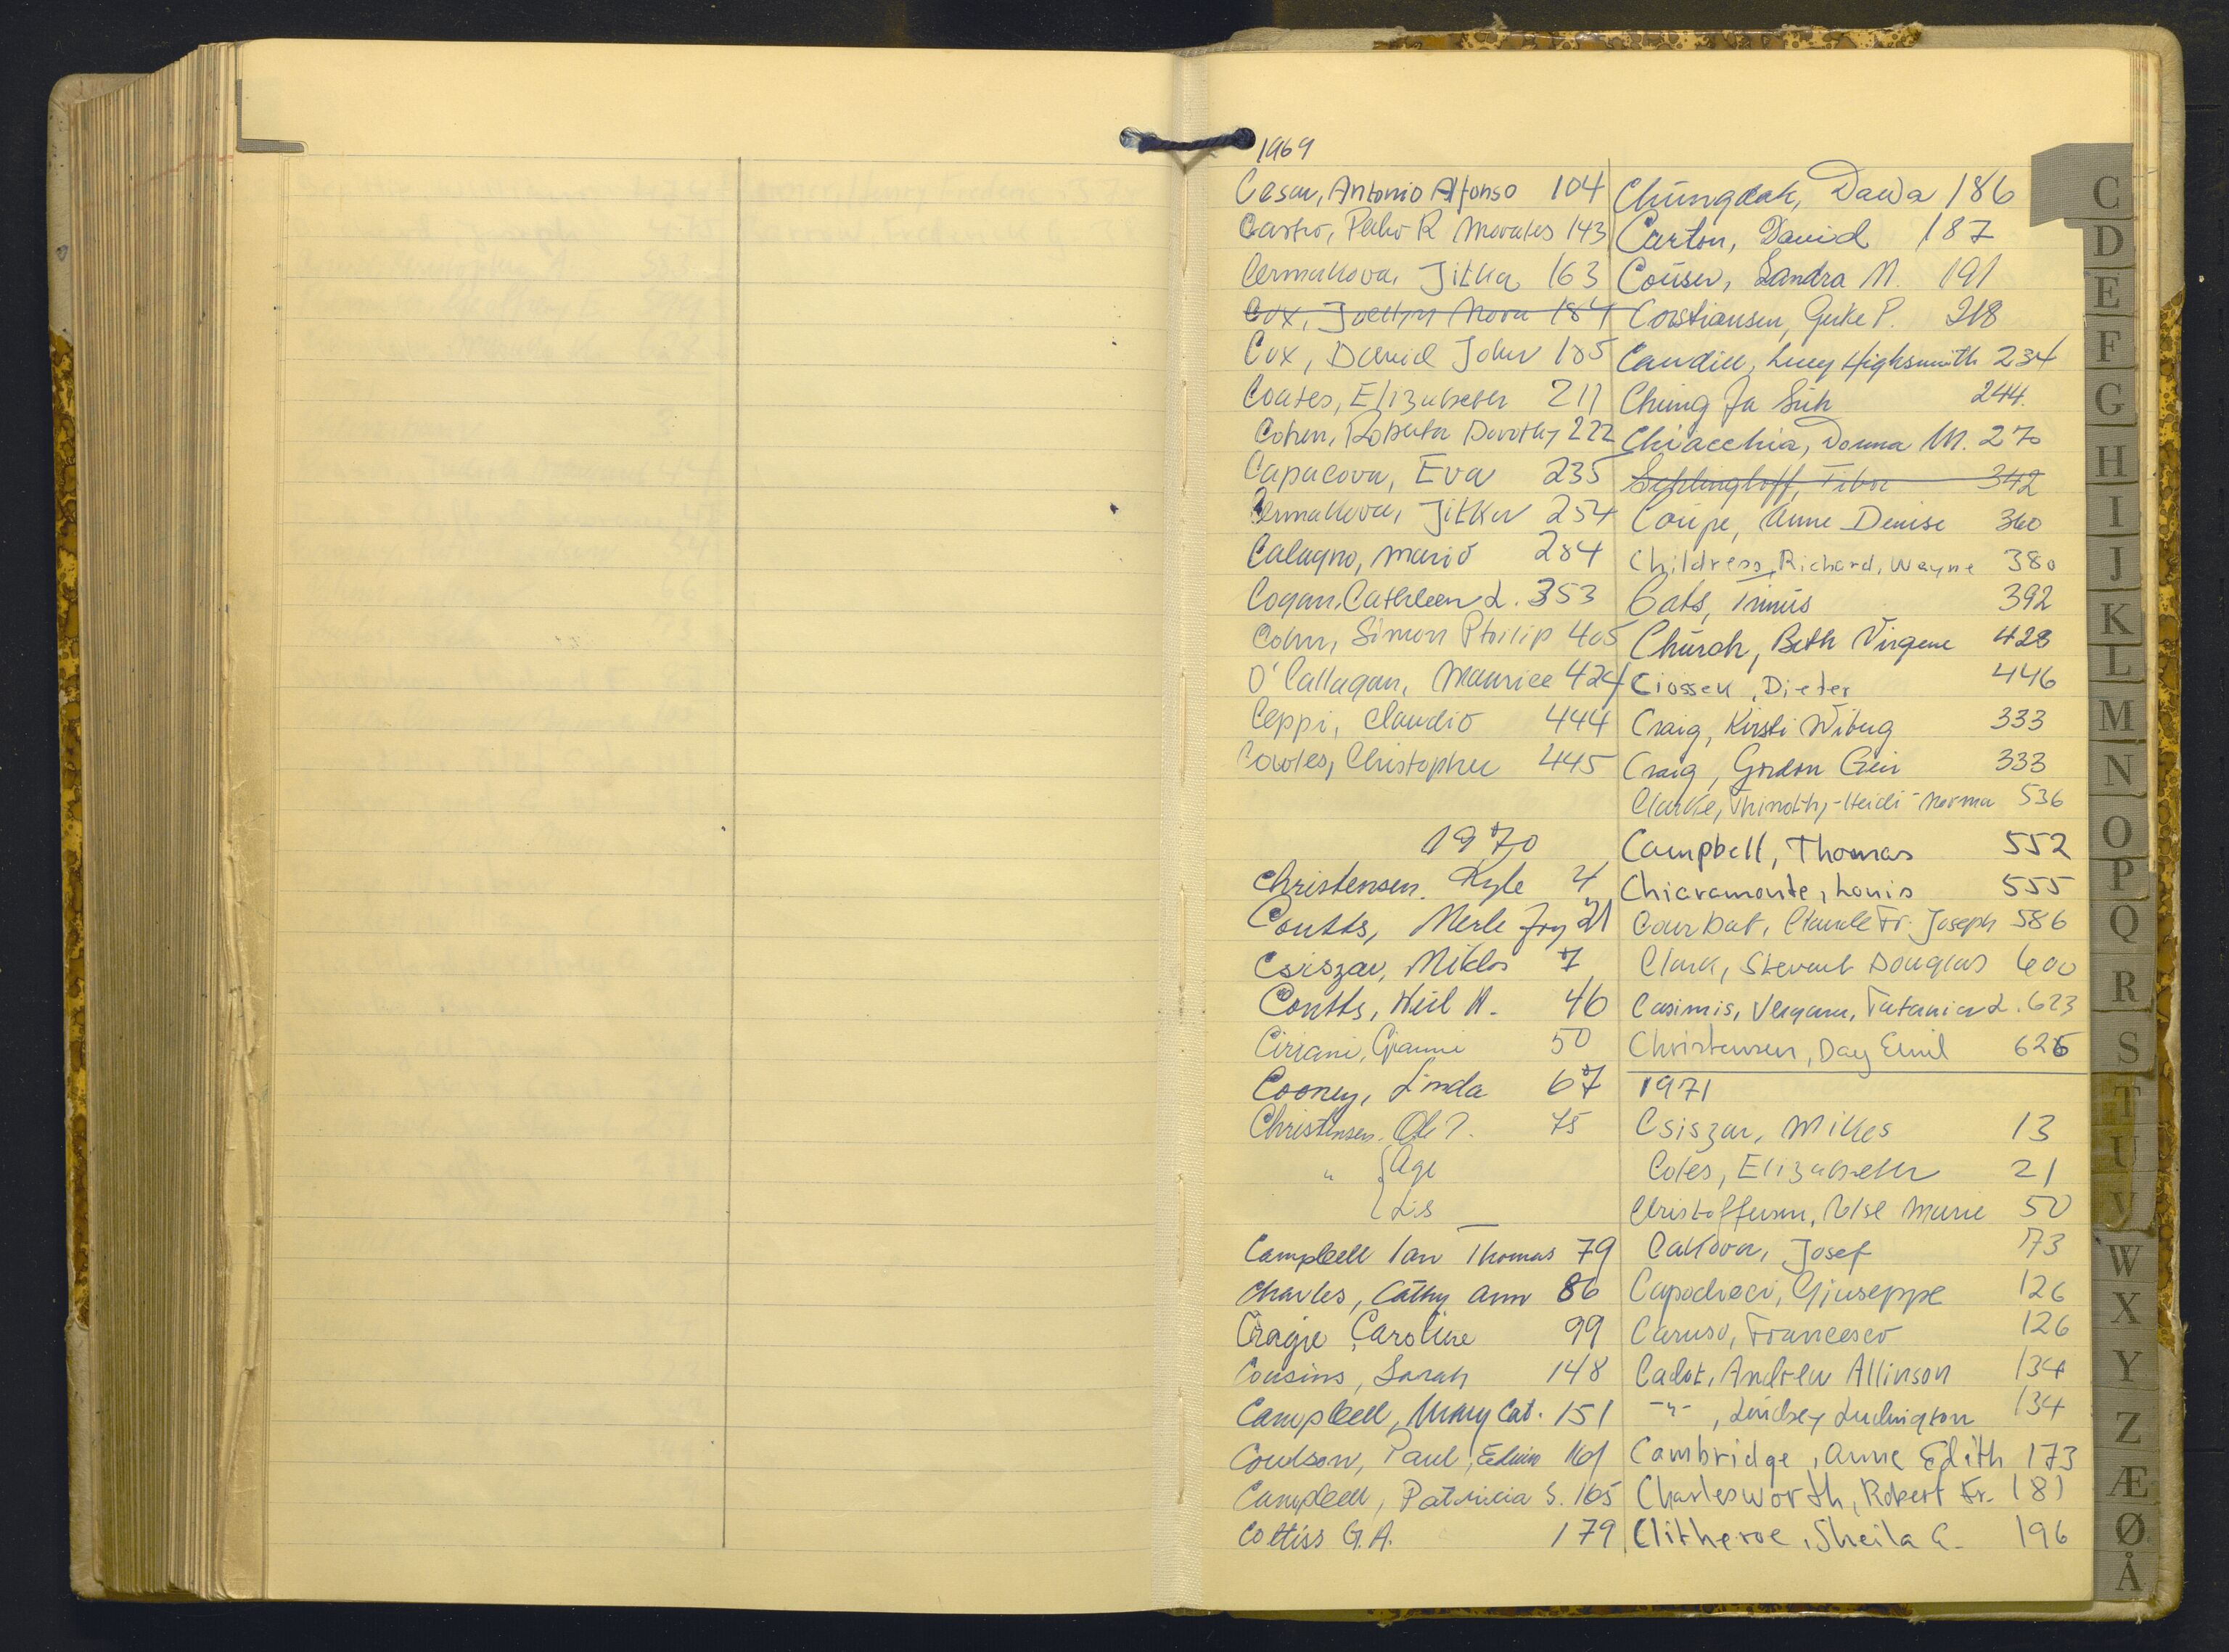 1969
Cesar, Antonio Alfonso 104
Castro, Pedro R Morales 143
Cermakova, Jitka 163
Cox, Jocelyn Nova 184
Cox, David John 185
Coates, Elizabeth 211
Cohen, Roberta Dorothy 222
Capacova, Eva 235
Cermakova, Jitka 254
Calagno, Mario 284
Cogan, Cathleen L. 353
Cohn, Simon Philip 405
O'Callagan, Maurice 424
Ceppi, Claudio 444
Cowles, Christopher 445
1970
Christensen, Kyle 4
Coutts, Merle Joy 21
Csiszar, Miklos 7
Coutts, Neil A. 46
Ciriani, Gianni 50
Cooney, Linda 67
Christensen, Ole P. 75
" Åge
Lis
Campbell Ian Thomas 79
Charles, Cathy Ann 86
Craigie, Caroline 99
Cousins, Sarah 148
Campbell, Mary Cat. 151
Coulson, Paul, Edwin 161
Campbell, Patricia S. 165
Coltiss G.A. 179
Chungdak, Dawa 186
Carton, David 187
Couser, Sandra M. 191
Corstiansen, Gerke P. 218
Caudill, Lucy Highsmith 234
Chung Ja Suh 244.
Chiacchia, Donna M. 270
Seplinghoff, Tibor 342
Coupe, Anne Denise 360
Childress, Richard, Wayne 380
Cats, Trinus 392
Church, Beth Virgene 428
Ciossek, Dieter 446
Craig, Kirsti Wiberg 333
Craig, Gordon Geir 333
Clarke, Thimothy - Heidi - Norma 536
Campbell, Thomas 552
Chiaramonte, Louis 555
Courbat, Claude Fr. Joseph 586
Clark, Stevart Douglas 600
Casimis, Vergara, Tatania L. 623
Christensen, Dag Emil 626
1971
Csiszar, Mikles 13
Coles, Elizabeth 21
Christoffersen, Else Marie 50
Calkova, Josef 73
Capodieci, Giuseppe 126
Caruso, Francesco 126
Cadot, Andrew Allinson 134
-"- , Lindsey Ludington 134
Cambridge, Anne Edith 173
Charlesworth, Robert Fr. 181
Clitheroe, Sheila C. 196
C
D
E
F
G
H
I
J
K
L
M
N
O
P
Q
R
S
T
U
V
W
X
Y
Z
Æ
Ø
Å